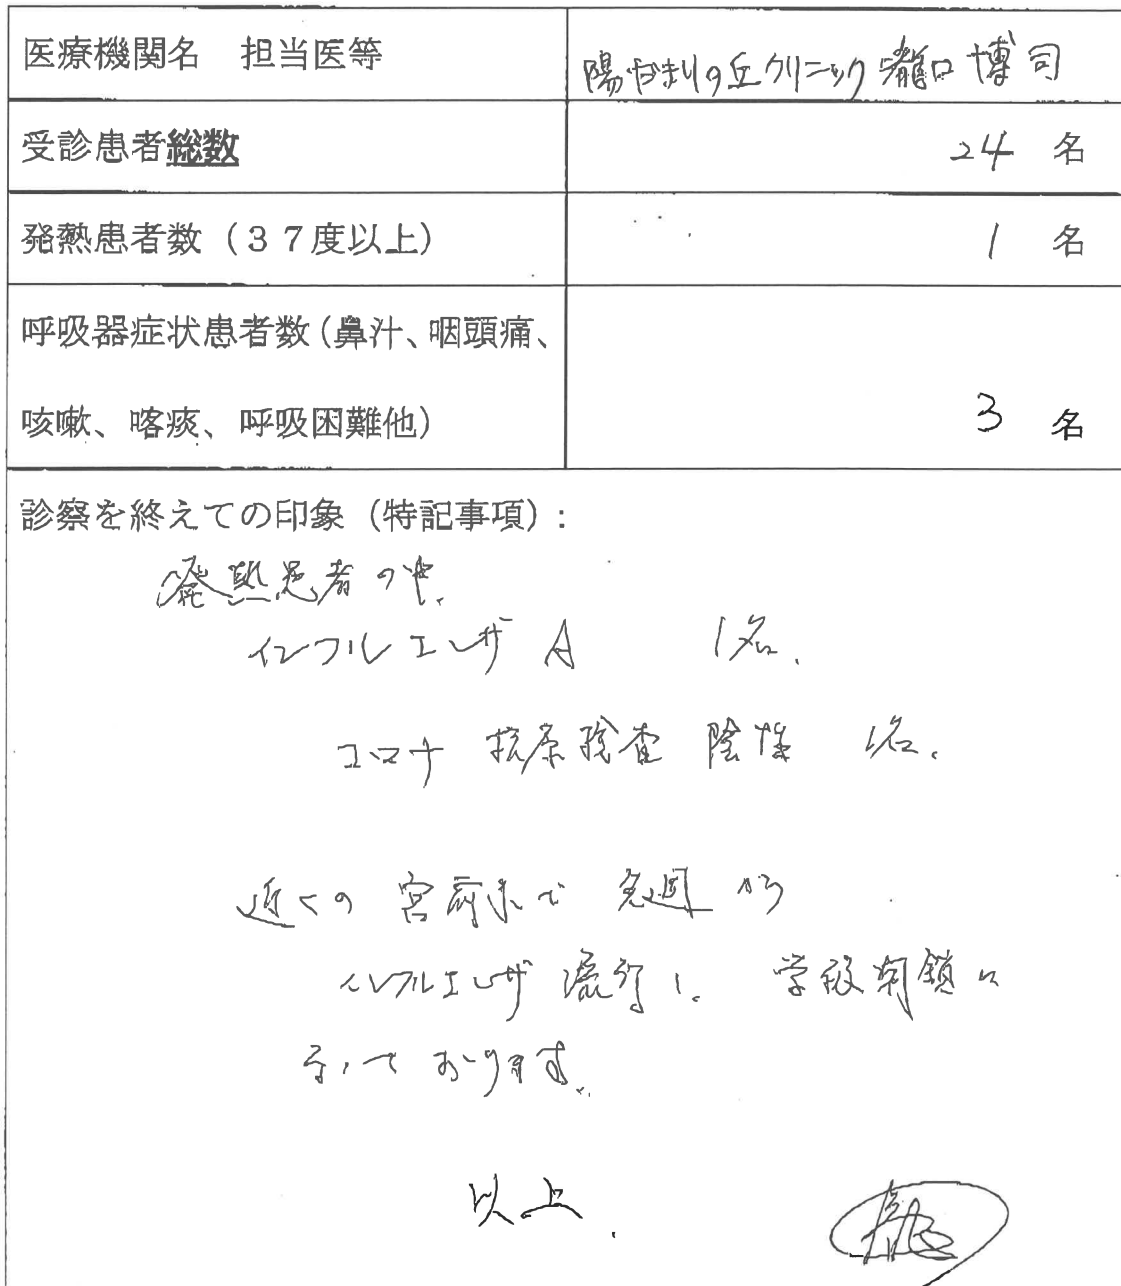 医療機関名 担当医等
陽だまりの丘クリニック 瀧口博司
受診患者総数
24 名
発熱患者数（37度以上）
1 名
呼吸器症状患者数（鼻汁、咽頭痛、
咳嗽、喀痰、呼吸困難他）
3 名
診察を終えての印象（特記事項）:
発熱患者の中、
インフルエンザ A 1名、
コロナ 抗原検査 陰性 1名、
近くの 宮前 で 週 から
インフルエンザ 流行し、 学級閉鎖に
なって おります。
以上、